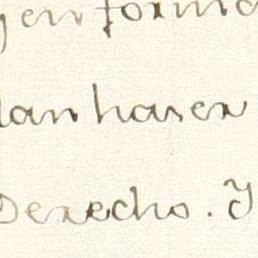 y en forma
dan hacer
Derecho. Y